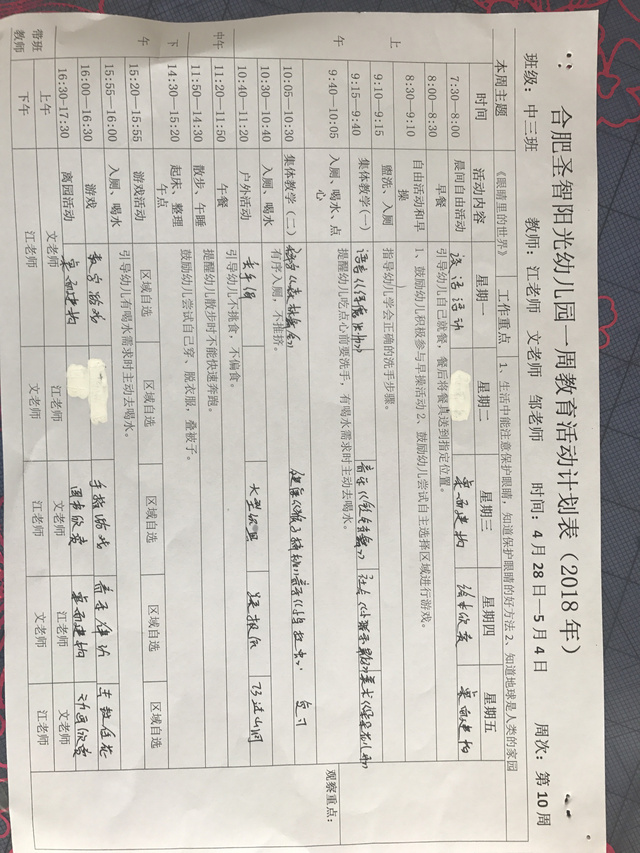 合肥圣智阳光幼儿园一周教育活动计划表（2018 年）
班级：中三班 教师：江老师 文老师 邹老师 时间：4 月 28 日—5 月 4 日 周次：第 10 周
本周主题 《眼睛里的世界》 工作重点 1、生活中能注意保护眼睛，知道保护眼睛的好方法 2、知道地球是人类的家园
时间 活动内容 星期一 星期二 星期三 星期四 星期五
上午
7:30—8:00 晨间自由活动 谈话活动 桌面建构 绘本欣赏 桌面建构
8:00—8:30 早餐 引导幼儿自己就餐，餐后将餐具送到指定位置。
8:30—9:10 自由活动和早操 1、鼓励幼儿积极参与早操活动 2、鼓励幼儿尝试自主选择区域进行游戏。
9:10—9:15 盥洗、入厕 指导幼儿学会正确的洗手步骤。
9:15—9:40 集体教学（一） 语言
9:40—10:05 入厕、喝水、点心 提醒幼儿吃点心前要洗手，有喝水需求时主动去喝水。
10:05—10:30 集体教学（二） 复习
10:30—10:40 入厕、喝水 有序入厕，不推挤。
10:40—11:20 户外活动 大型玩具
中午
11:20—11:50 午餐 引导幼儿不挑食，不偏食。
11:50—14:30 散步、午睡 提醒幼儿散步时不能快速奔跑。
下午
14:30—15:20 起床、整理 午点 鼓励幼儿尝试自己穿、脱衣服，叠被子。
15:20—15:55 游戏活动 区域自选 区域自选 区域自选 区域自选 区域自选
15:55—16:00 入厕、喝水 引导幼儿有喝水需求时主动去喝水。
16:00—16:30 游戏 数学游戏 手指游戏 音乐律动
16:30—17:30 离园活动 桌面建构 图书欣赏 桌面建构 动画欣赏
带班教师 上午 文老师 江老师 文老师 江老师 文老师
下午 江老师 文老师 江老师 文老师 江老师
观察重点：